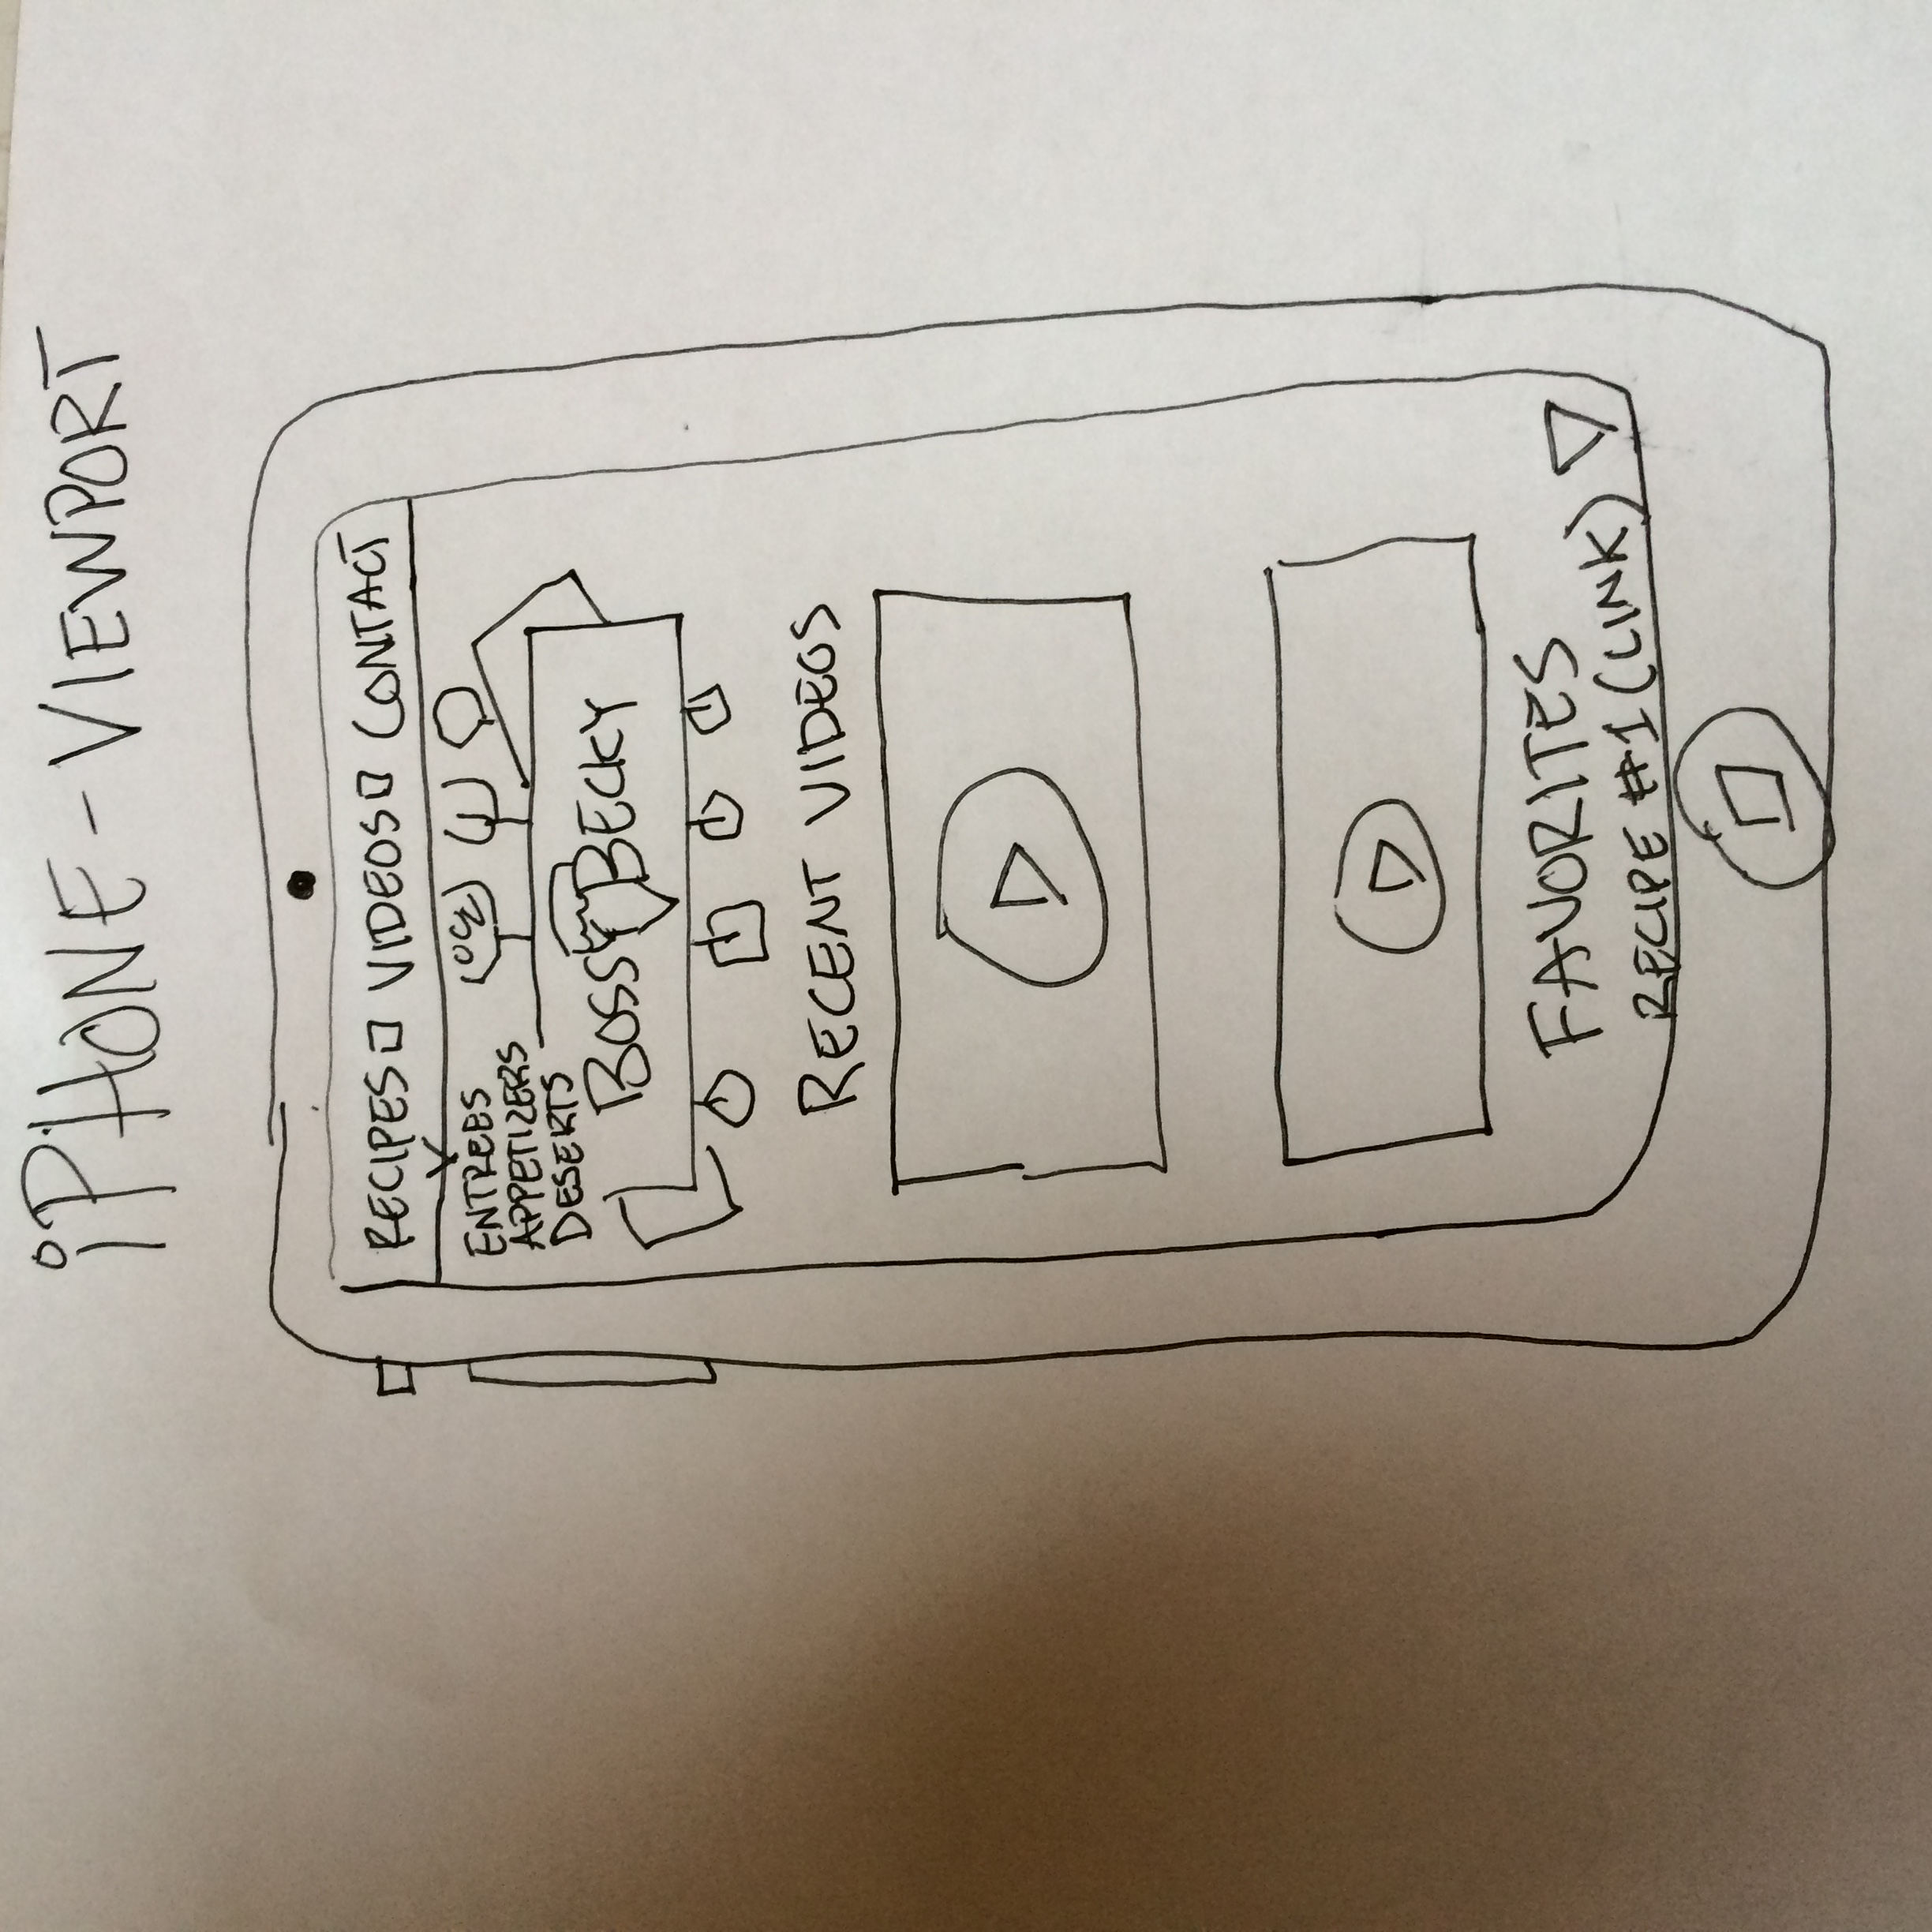 iPHONE - VIEWPORT
RECIPES VIDEOS CONTACT
ENTREES
APPETIZERS
DESERTS
BOSSY BECKY
RECENT VIDEOS
FAVORITES
RECIPE #1 (LINK)